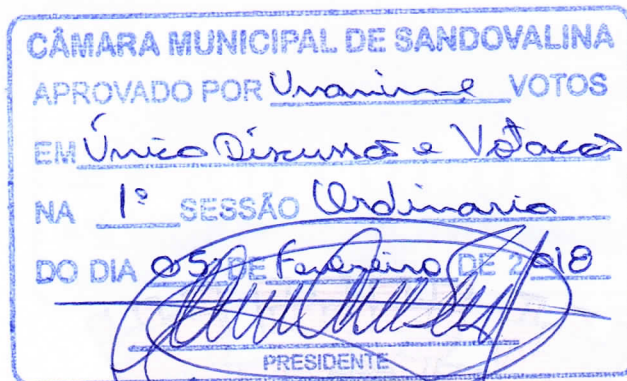 CÂMARA MUNICIPAL DE SANDOVALINA
APROVADO POR Unanime VOTOS
EM Única Discussão e Votação
NA 1ª SESSÃO Ordinaria
DO DIA 05 DE Fevereiro DE 2018
PRESIDENTE